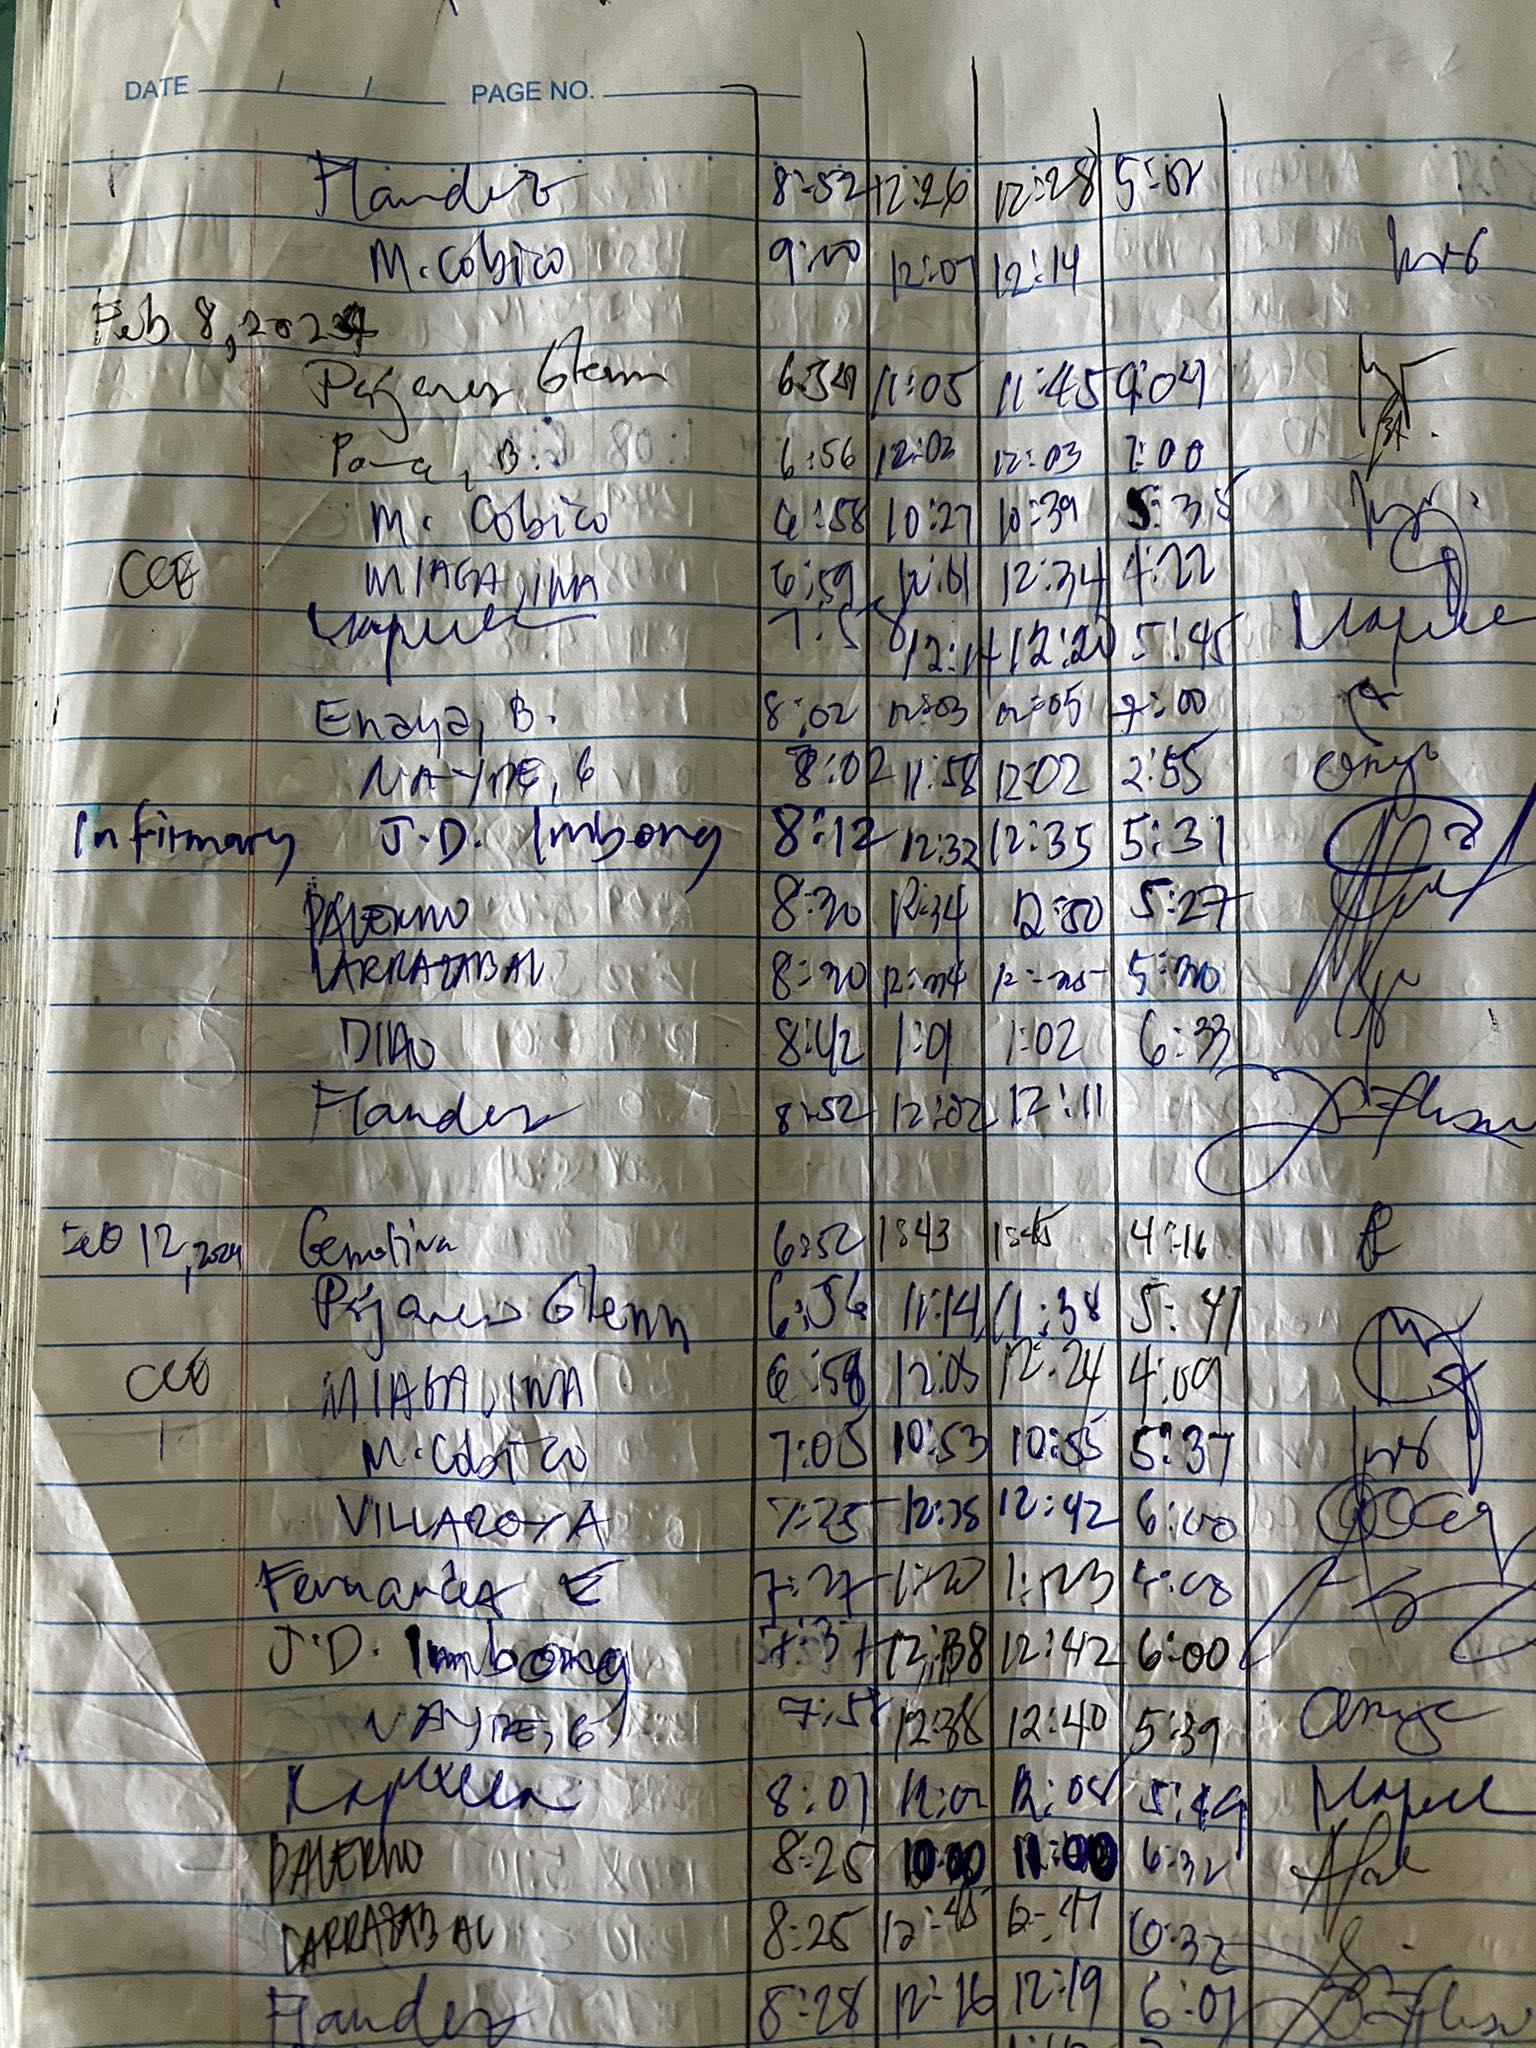 DATE / / PAGE NO.
Flandez 8:52 12:26 12:28 5:02
M. Cobico 9:00 12:07 12:14
Feb 8, 2024
Pejaner Glenn 6:34 11:05 11:45 4:04
B. 6:56 12:02 12:03 7:00
M. Cobico 6:58 10:27 10:39 5:35
CCE MIAGA, INA 6:59 12:01 12:34 4:22
7:58 12:14 12:20 5:45
Enaya, B. 8:02 12:03 12:05 7:00
NAYRE, G 8:02 11:58 12:02 2:55
Infirmary J.D. Imbong 8:12 12:32 12:35 5:31
PALERMO 8:30 12:34 12:50 5:27
LARRAZABAL 8:30 12:34 12:35 5:30
DIAO 8:42 1:01 1:02 6:33
Flandez 8:52 12:02 12:11
Feb 12, 2024 Genotiva 6:52 1:43 1:45 4:16
Pejaner Glenn 6:56 11:14 11:38 5:41
CCE MIAGA, INA 6:58 12:05 12:24 4:09
M. Cobico 7:05 10:53 10:55 5:37
VILLAROYA 7:25 12:38 12:42 6:00
Fernandez E 7:27 1:20 1:23 4:08
J.D. Imbong 7:37 12:38 12:42 6:00
NAYRE, G 7:58 12:38 12:40 5:39
8:01 12:02 12:05 5:49
PALERMO 8:25 10:00 11:00 6:32
LARRAZABAL 8:25 12:45 12:47 6:32
Flandez 8:28 12:16 12:19 6:01